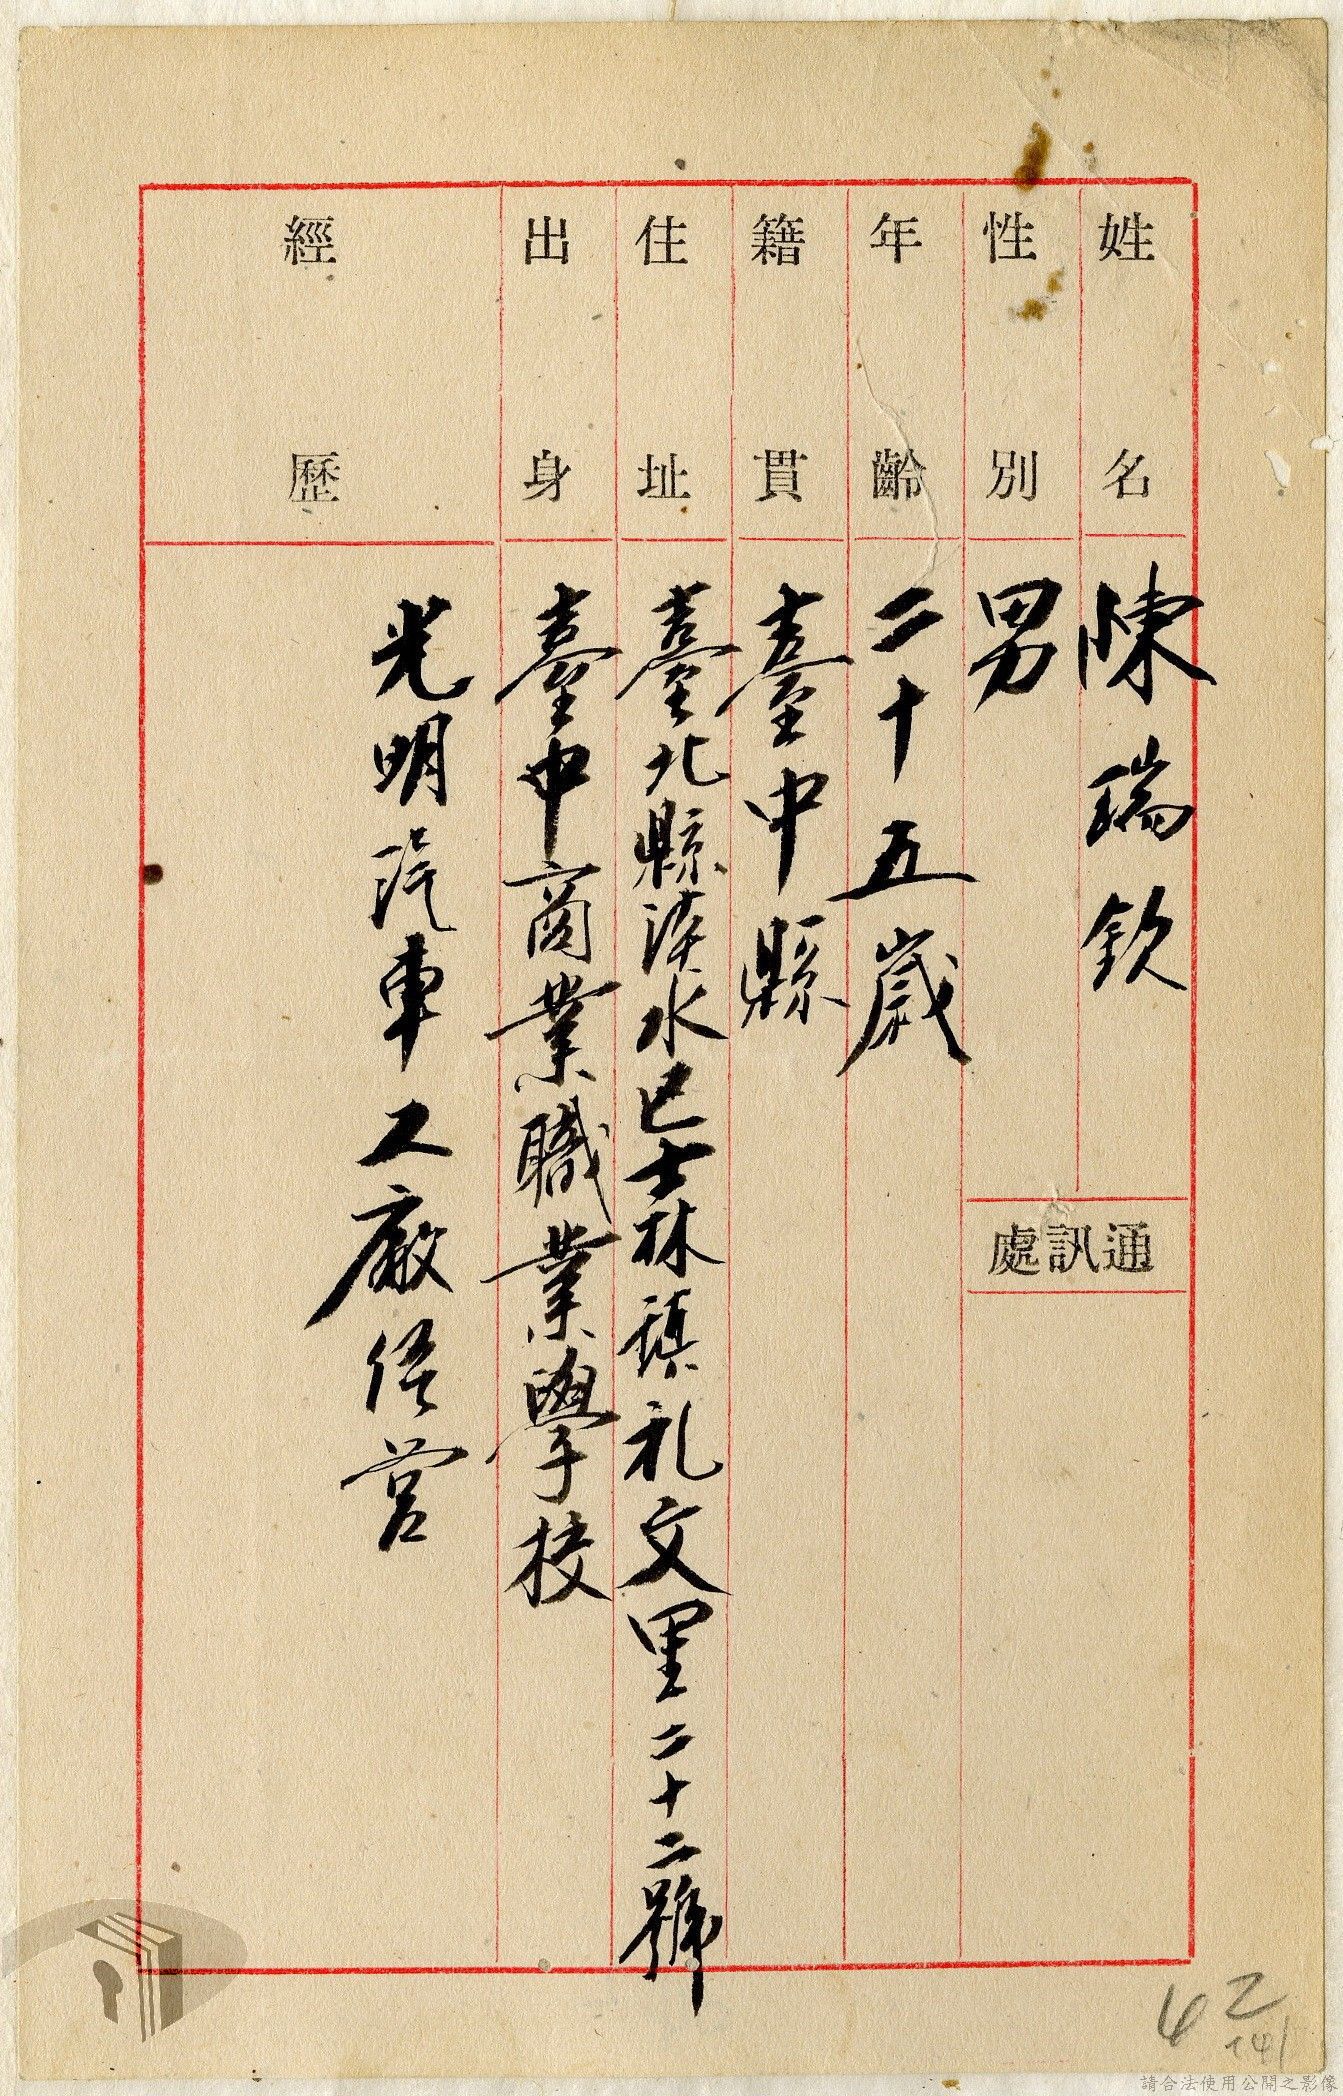 姓名 陳瑞欽
性別 男
通訊處
年齡 二十五歲
籍貫 臺中縣
住址 臺北縣淡水區士林鎮礼文里二十二號
出身 臺中商業職業學校
經歷 光明汽車工廠經營
42
141
請合法使用公開之影像